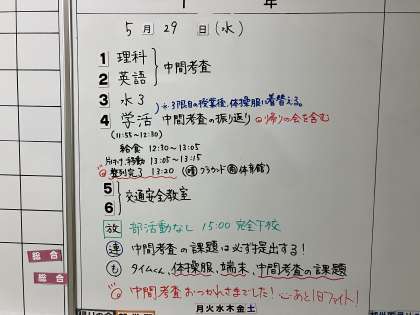 年
5月29日(水)
1 理科
2 英語
中間考査
3 水3
※3限目の授業後、体操服に着替える。
4 学活 中間考査の振り返り ◎帰りの会を含む
(11:55~12:30)
給食 12:30~13:05
片付け、移動 13:05~13:15
整列完了 13:20 (晴グラウンド 雨体育館)
5
6
交通安全教室
放 部活動なし 15:00 完全下校
連 中間考査の課題は必ず提出する!
も タイムくん、体操服、端末、中間考査の課題
中間考査おつかれさまでした! あと1日ファイト!
総合
総合
月火水木金土